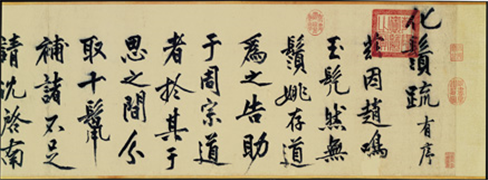 化鬚疏有序
兹因趙鳴
玉髡然無
鬚姚存道
為之告助
于周宗道
者於其于
思之間分
取十鬣
補諸不足
請沈啓南